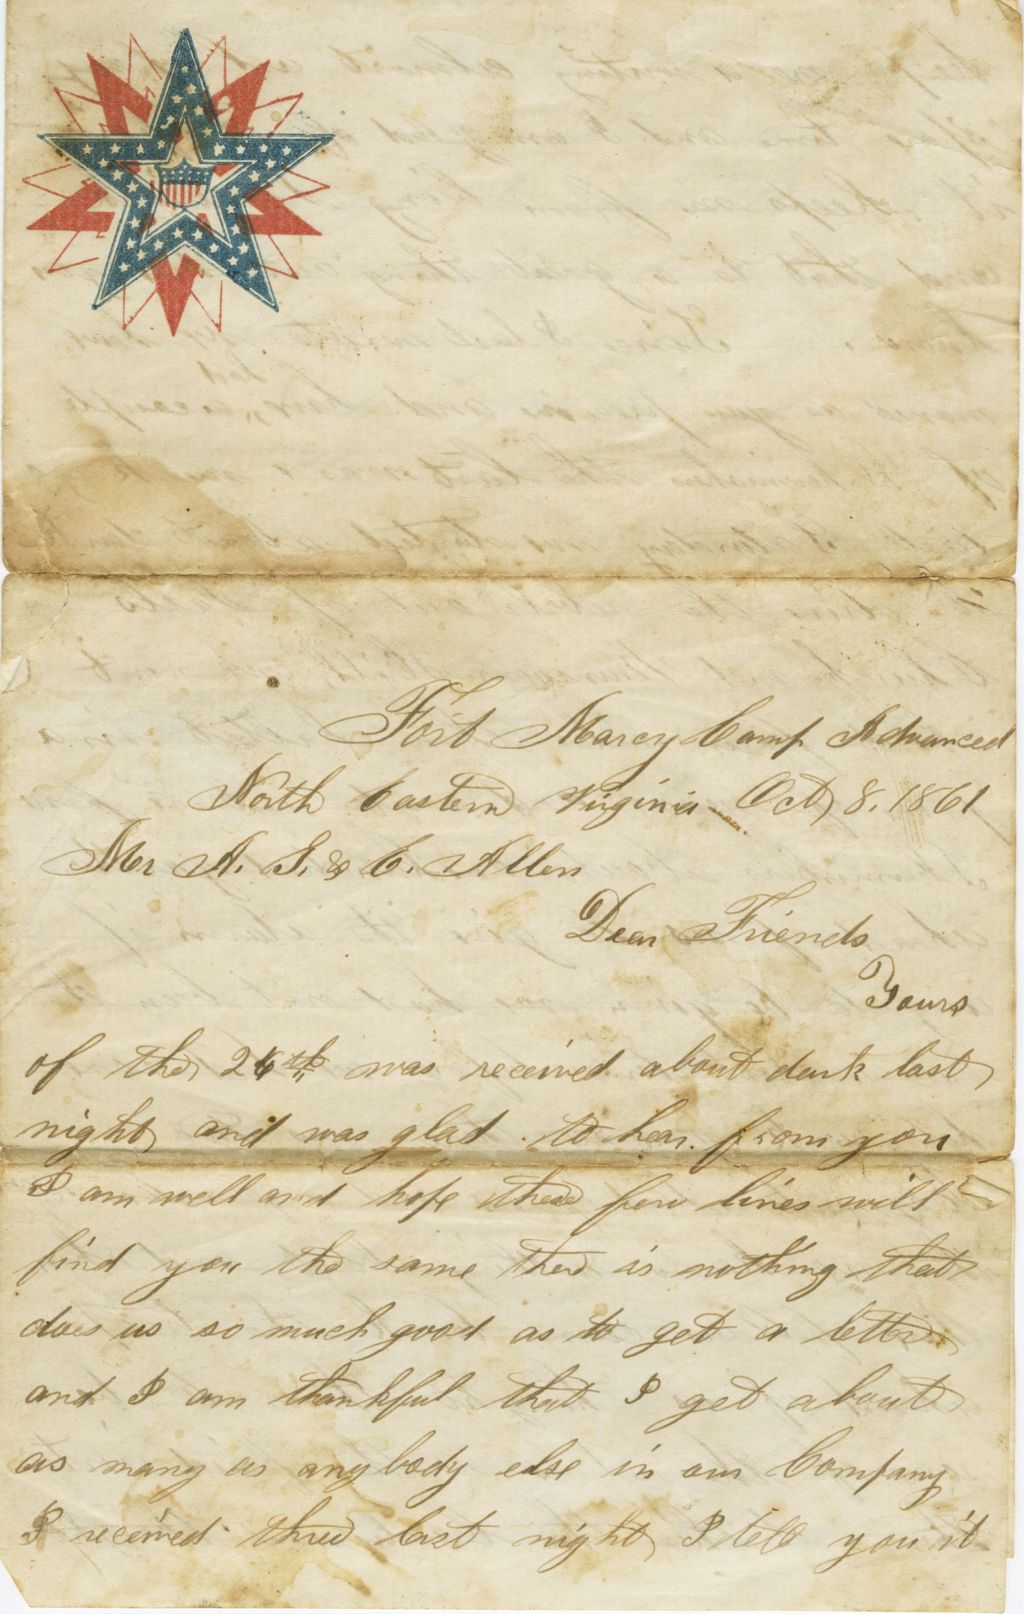 Fort Marcy Camp Advanced
North Eastern Virginia Oct 8. 1861
Mr A. S. & C. Allen
Dear Friends
Yours
of the 26th was received about dark last
night and was glad to hear from you
I am well and hope these few lines will
find you the same there is nothing that
does us so much good as to get a letter
and I am thankful that I get about
as many as any body else in our Company
I received three last night I tell you it